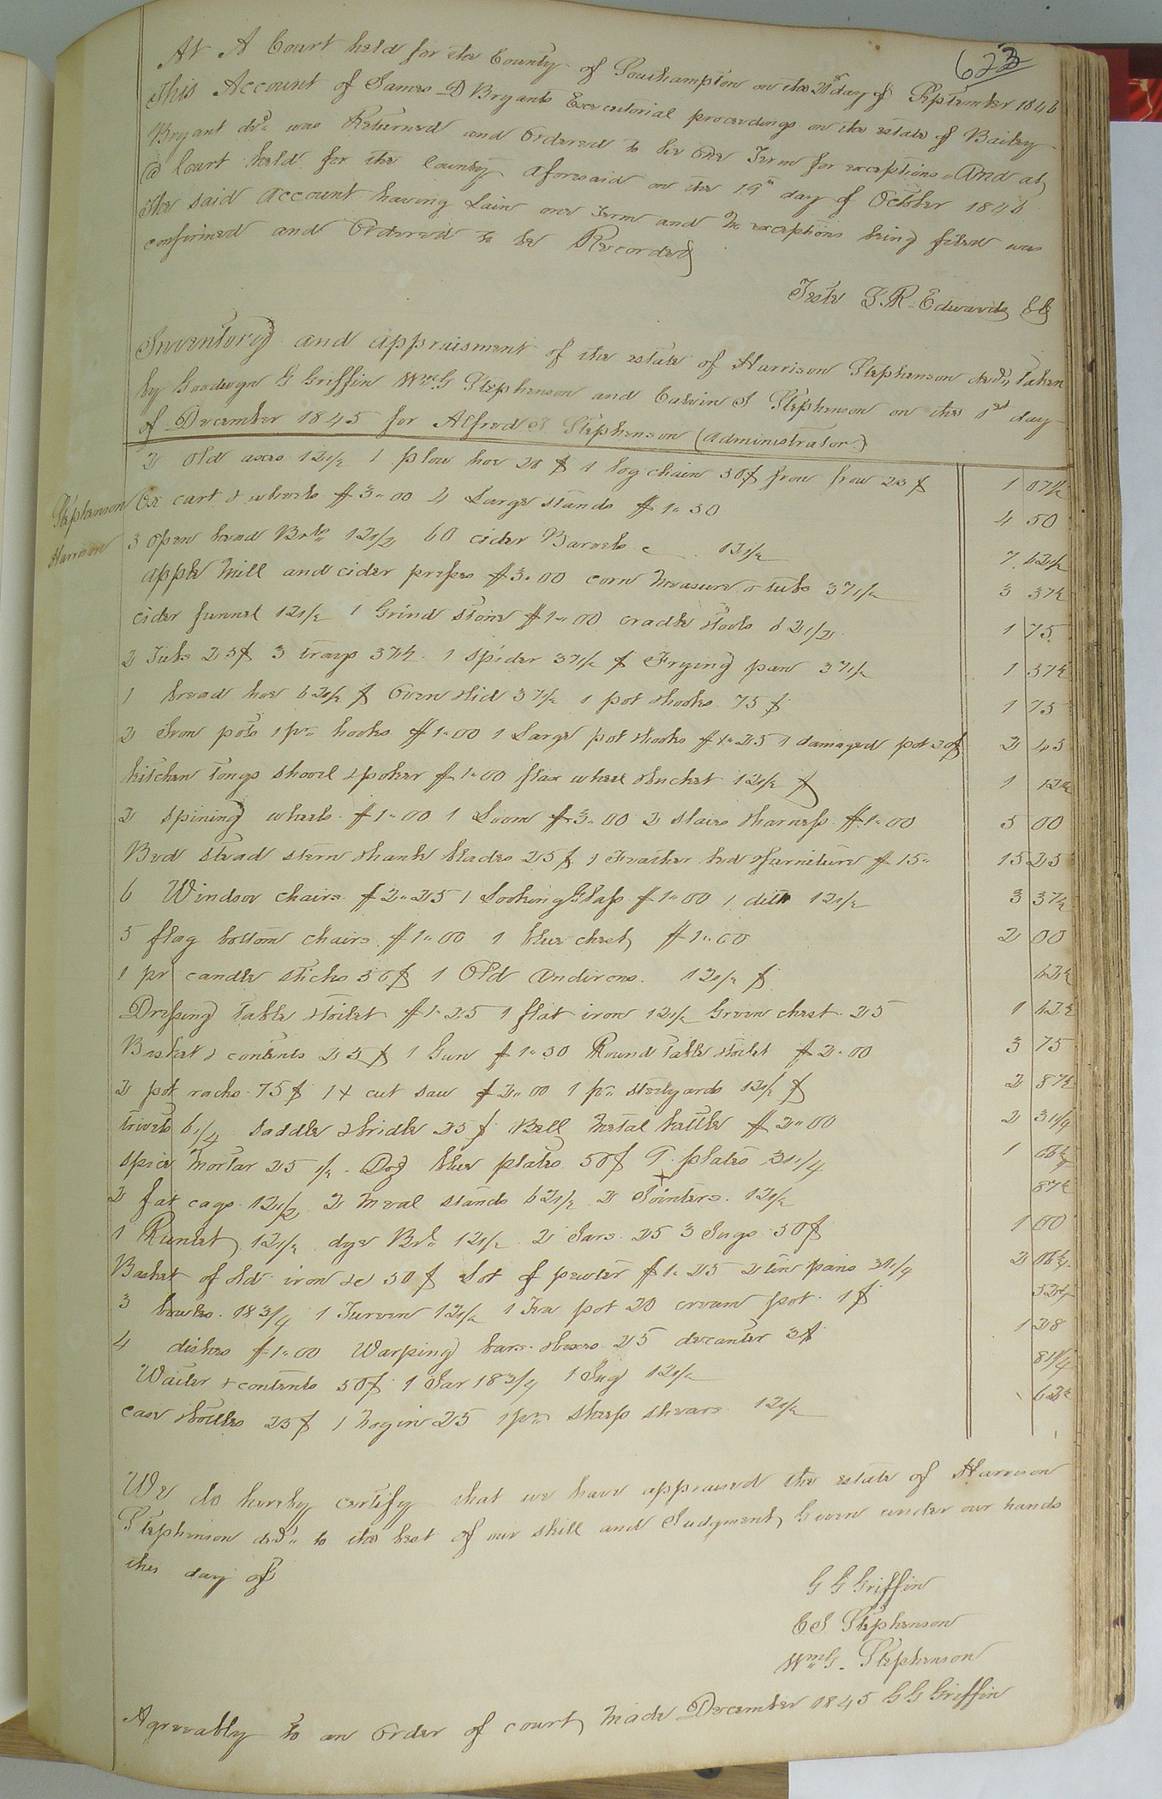 623
At A Court held for the County of Southampton on the 21st day of September 1846
This Account of James D Bryants Executorial proceedings on the estate of Bailey
Bryant decd. was Returned and Ordered to lie One Term for exceptions. And at
a Court held for the County aforesaid on the 19th day of October 1846
the said Account having Lain one Term and No exceptions being filed was
confirmed and Ordered to be Recorded
Teste L. R. Edwards CC
Inventory and appraisment of the estate of Harrison Stephenson decd. Taken
by Goodwyn G Griffin Wm G Stephenson and Calvin S Stephenson on the 1st day
of December 1845 for Alfred Stephenson (Administrator)
Stephenson
Harrison
2 Old axes 12 1/2 1 plow hoe 20 ¢ 1 log chain 50 ¢ frow 25 ¢ 1 07 1/2
Ox cart & wheels $3.00 4 Large stands $1.50 4 50
3 open head Brls 12 1/2 60 cider Barrels 12 1/2 7 62 1/2
apple Mill and cider press $3.00 corn Measure & tubs 37 1/2 3 37 1/2
cider funnel 12 1/2 1 Grind Stone $1.00 cradle & tools 62 1/2 1 75
2 Tubs 25 ¢ 3 trays 37 1/2 1 spider 37 1/2 ¢ Frying pan 37 1/2 1 37 1/2
1 bread hoe 62 1/2 ¢ Oven & lid 37 1/2 1 pot & hooks 75 ¢ 1 75
2 Iron pots 1 pr. hooks $1.00 1 Large pot & hooks $1.25 1 damaged pot 20 ¢ 2 45
kitchen tongs shovel & poker $1.00 flax wheel & hucket 12 1/2 ¢ 1 12 1/2
2 spining wheels $1.00 1 Loom $3.00 2 slaies & harness $1.00 5 00
Bed stead stern shank blades 25 ¢ 1 Feather bed & furniture $15. 15 25
6 Windsor chairs $2.25 1 Looking Glass $1.00 1 ditto 12 1/2 3 37 1/2
5 flag bottom chairs $1.00 1 blue chest $1.00 2 00
1 pr candle sticks 50 ¢ 1 Old Andirons 12 1/2 ¢ 62 1/2
Dressing Table & toilet $1.25 1 flat iron 12 1/2 Green chest 25 1 62 1/2
Basket & contents 25 ¢ 1 Gun $1.50 Round Table & toilet $2.00 3 75
2 pot racks 75 ¢ 1 X cut saw $2.00 1 pr. steelyards 12 1/2 ¢ 2 87 1/2
trivets 6 1/4 Saddle & bridle 25 ¢ Bell Metal kettle $2.00 2 31 1/4
Spice Mortar 25 Doz blue plates 50 ¢ 9 plates 31 1/4 1 06 1/4
2 fat cags 12 1/2 2 Meal stands 62 1/2 2 Jointers 12 1/2 87 1/2
1 Runlet 12 1/2 dye Brl. 12 1/2 2 Jars 25 3 Jugs 50 ¢ 1 00
Basket of old iron &c 50 ¢ Lot of pewter $1.25 2 tin pans 31 1/4 2 06 1/4
3 bowls 18 3/4 1 Tureen 12 1/2 1 Tea pot 20 cream pot 1 ¢
4 dishes $1.00 Warping bars & boxes 25 decanter 3 ¢ 1 28
Waiter & contents 50 ¢ 1 Jar 18 3/4 1 Jug 12 1/2 81 1/4
case & bottles 25 ¢ 1 Nogin 25 1 pr. sheep shears 12 1/2 62 1/2
We do hereby certify that we have appraised the estate of Harrison
Stephenson decd. to the best of our skill and Judgment, Given under our hands
this day of
G G Griffin
C S Stephenson
Wm G. Stephenson
Agreeably to an Order of court, Made December 1845 G G Griffin